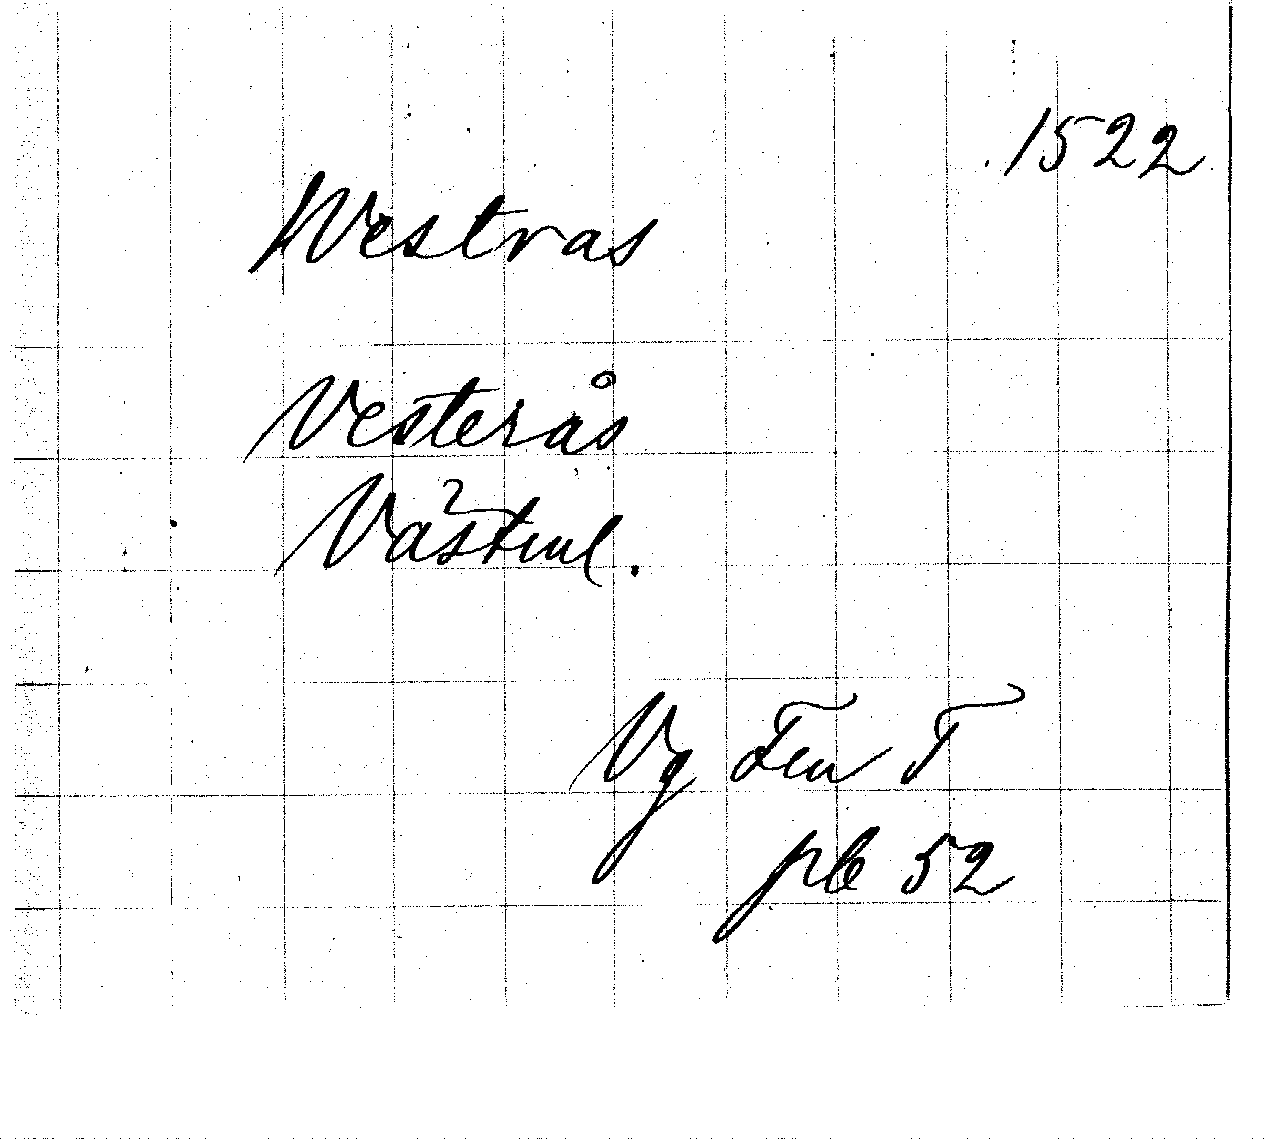 1522
Westras
Vesterås
Västml.
Vg Fem T
pb 52